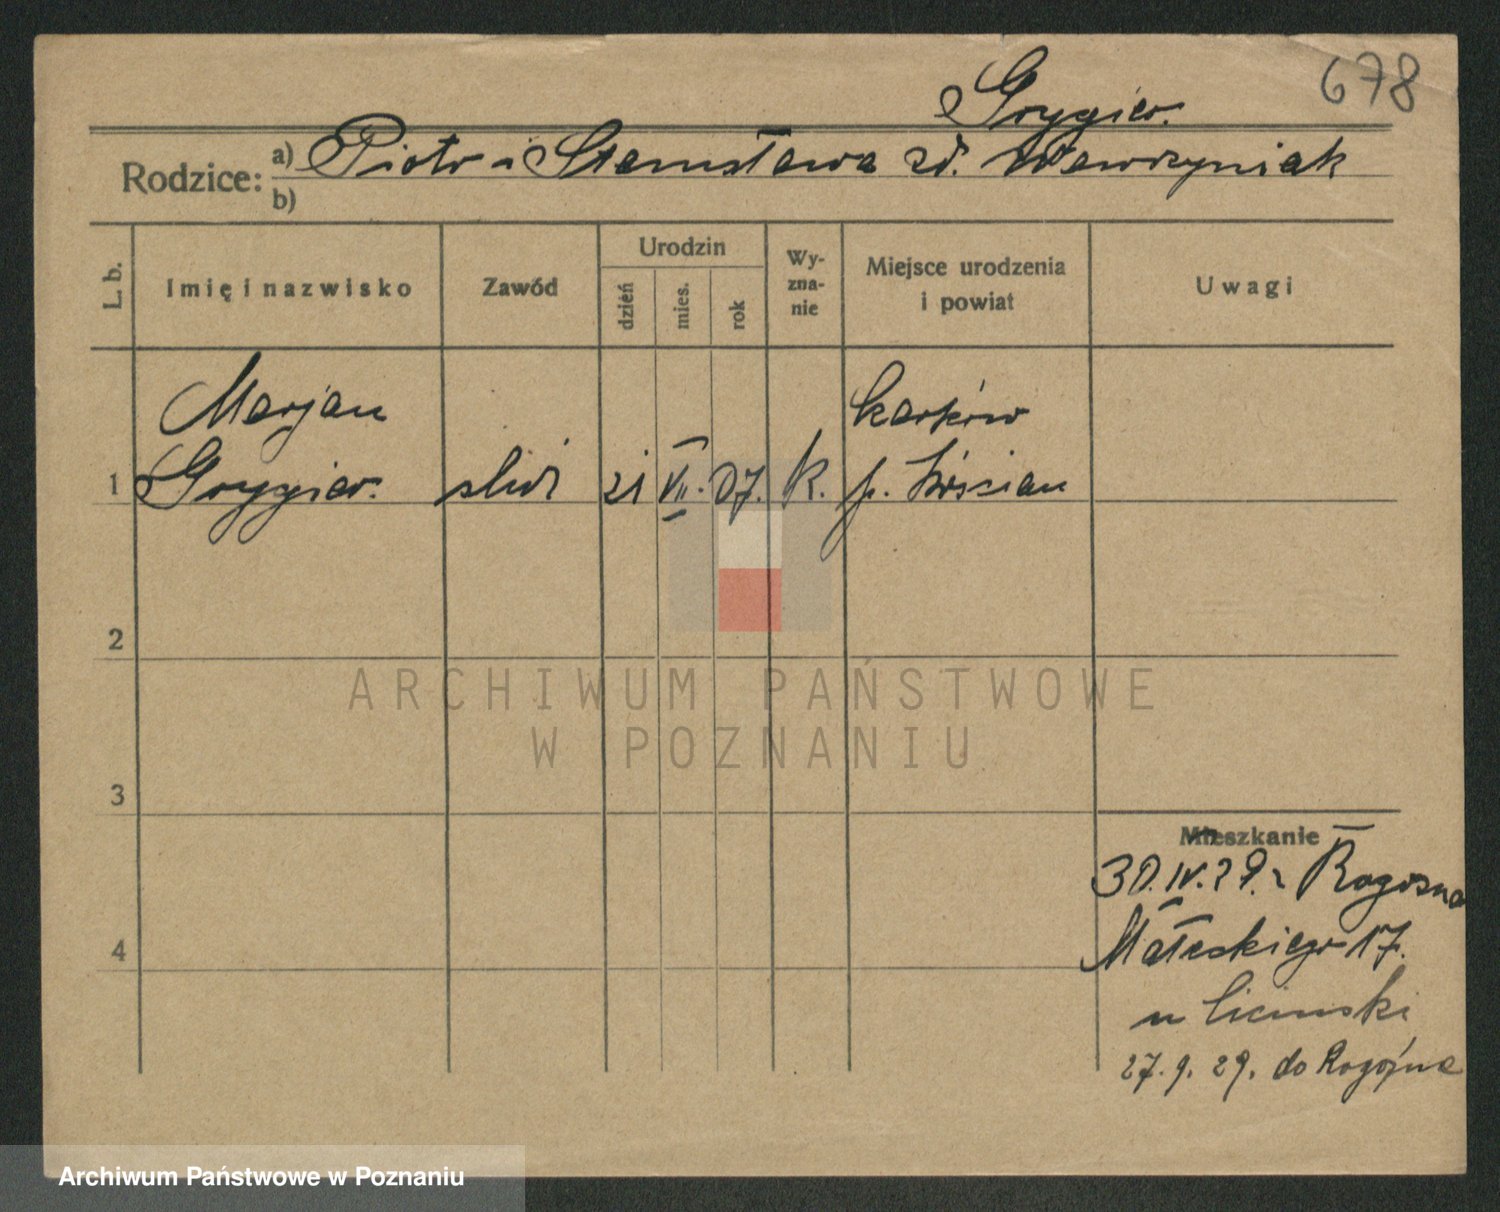 678
Grygier.
Rodzice: a) Piotr i Stanisława zd. Wawrzyniak
b)
L. b.
Imię i nazwisko
Zawód
Urodzin
dzień
mies.
rok
Wy-
zna-
nie
Miejsce urodzenia
i powiat
Uwagi
Marjan
Karków
1 Grygier. 21 VII. 07. K. p.
2
ARCHIWUM PAŃSTWOWE
W POZNANIU
3
Mieszkanie
30.IV.29. z Rogozna
4 Małeckiego 17.
u
27.9.29. do Rogoźna
Archiwum Państwowe w Poznaniu